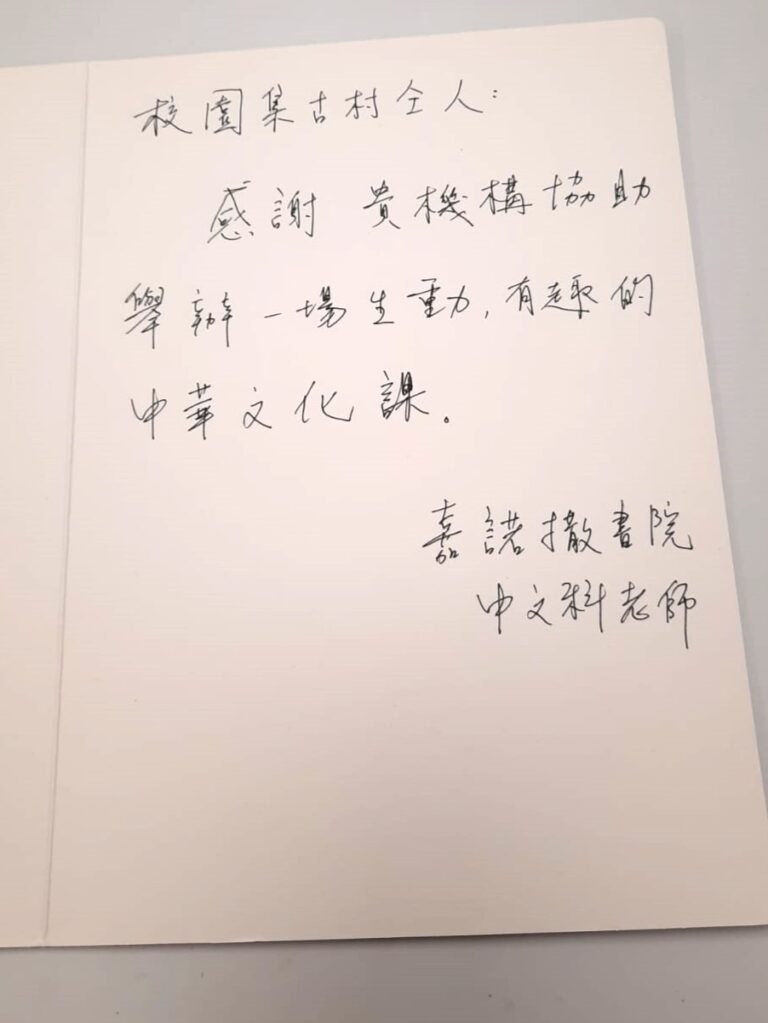 校園集古村仝人：
感謝 貴機構協助
舉辦一場生動,有趣的
中華文化課。
嘉諾撒書院
中文科老師